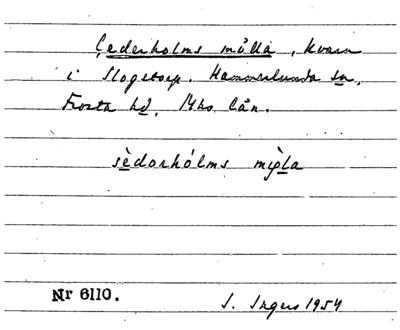 Cederholms mölla, kvarn
i Slogstorp. Hammarlunda sn,
Frosta hd. Mhs län.
sèdorhólms mìgla
Nr 6110.
I. Ingers 1954